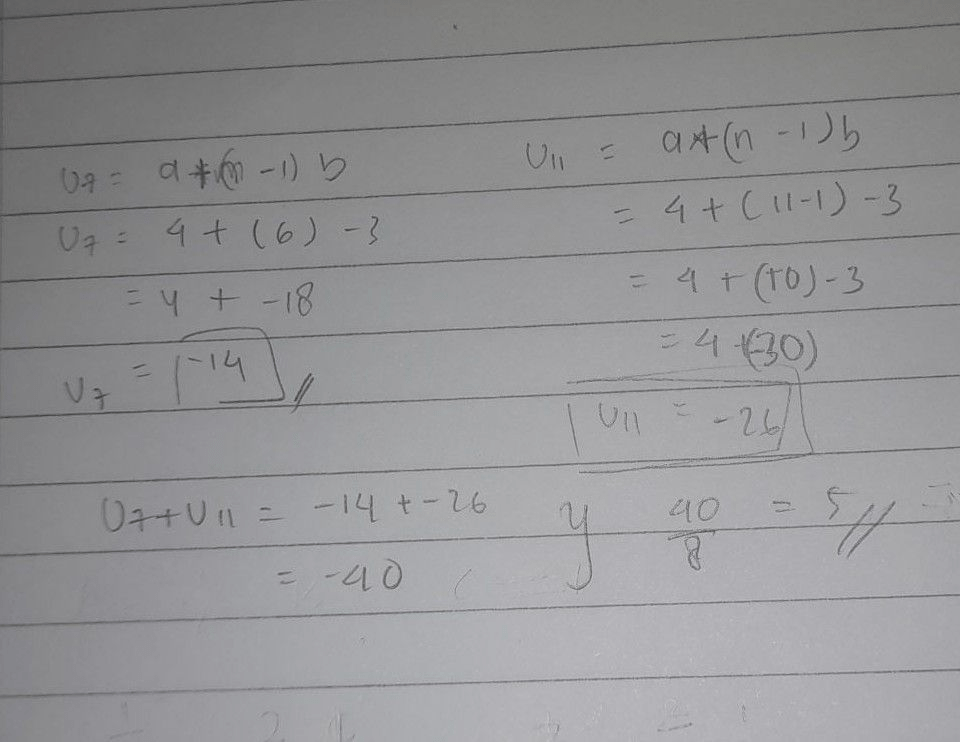 U7 = a+(n -1) b
U7 = 4 + (6) -3
= 4 + -18
U7 = -14
U11 = a+(n -1)b
= 4 + (11-1) -3
= 4 + (10) -3
= 4 +(-30)
U11 = -26
U7+U11 = -14 + -26
= -40
y 40/8 = 5